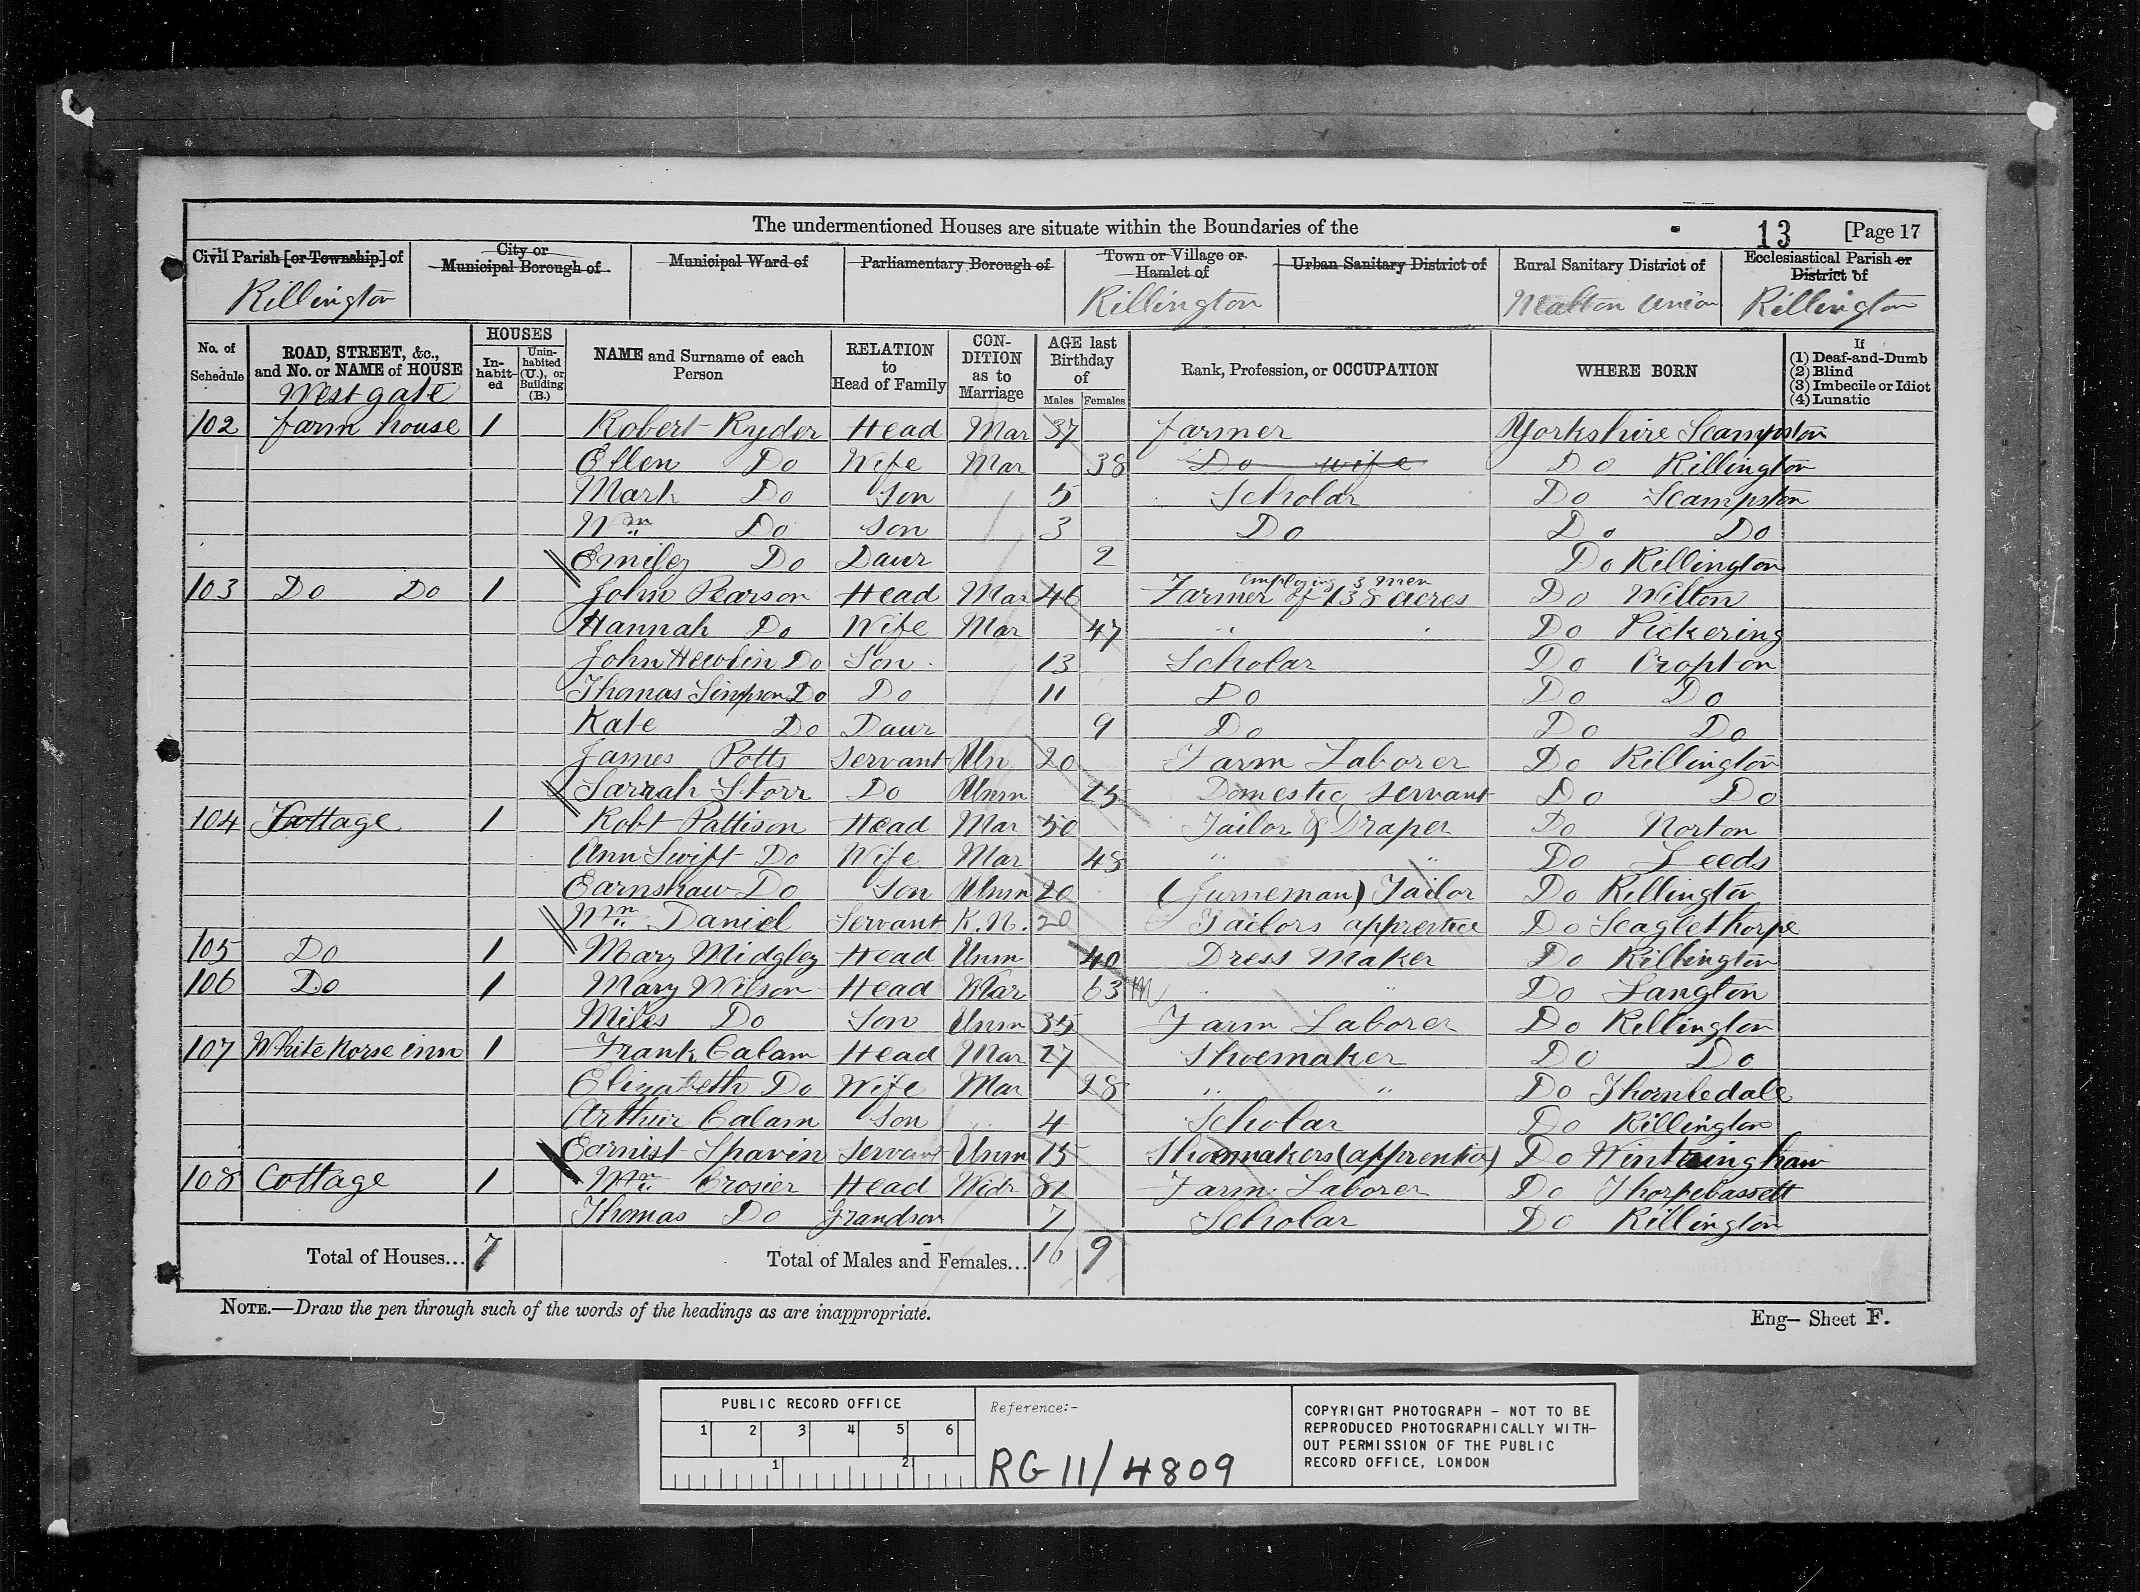 The undermentioned Houses are situate within the Boundaries of the 13 [Page 17
Civil Parish [or Township] of City or Municipal Borough of Municipal Ward of Parliamentary Borough of Town or Village or Hamlet of Urban Sanitary District of Rural Sanitary District of Ecclesiastical Parish or District of
Rillington Rillington Malton Union Rillington
No. of Schedule ROAD, STREET, &c., and No. or NAME of HOUSE HOUSES Inhabited Uninhabited (U.), or Building (B.) NAME and Surname of each Person RELATION to Head of Family CONDITION as to Marriage AGE last Birthday of Males Females Rank, Profession, or OCCUPATION WHERE BORN If (1) Deaf-and-Dumb (2) Blind (3) Imbecile or Idiot (4) Lunatic
Westgate
102 Farm house 1 Robert Ryder Head Mar 37 Farmer Yorkshire Scampston
Ellen Do Wife Mar 38 Do wife Do Rillington
Mark Do Son 5 Scholar Do Scampston
Wm Do Son 3 Do Do Do
Emiley Do Daur 2 Do Rillington
103 Do Do 1 John Pearson Head Mar 46 Farmer of 138 acres employing 3 men Do Wilton
Hannah Do Wife Mar 47 " " Do Pickering
John Do Son 13 Scholar Do Cropton
Thomas Simpson Do Do 11 Do Do Do
Kate Do Daur 9 Do Do Do
James Potts Servant Un 20 Farm Laborer Do Rillington
Sarrah Storr Do Unm 25 Domestic servant Do Do
104 Cottage 1 Robt Pattison Head Mar 50 Tailor & Draper Do Norton
Ann Swift Do Wife Mar 48 " " Do Leeds
Earnshaw Do Son Unm 20 (Jurneman) Tailor Do Rillington
Wm Daniel Servant K.N. 20 Tailors apprentice Do Scaglethorpe
105 Do 1 Mary Midgley Head Unm 40 Dress Maker Do Rillington
106 Do 1 Mary Wilson Head Mar 63 " " Do Langton
Miles Do Son Unm 35 Farm Laborer Do Rillington
107 White horse inn 1 Frank Calam Head Mar 27 Shoemaker Do Do
Elizabeth Do Wife Mar 28 " " Do Thorntedale
Arthur Calam Son 4 Scholar Do Rillington
Earnist Shavin Servant Unm 15 Shoemakers (apprentice) Do Wintringham
108 Cottage 1 Wm Crosier Head Widr 81 Farm Laborer Do Thorpebassett
Thomas Do Grandson 7 Scholar Do Rillington
Total of Houses... 7 Total of Males and Females... 16 9
NOTE.—Draw the pen through such of the words of the headings as are inappropriate.
Eng— Sheet F.
PUBLIC RECORD OFFICE
1 2 3 4 5 6
1 2
Reference:-
RG 11/4809
COPYRIGHT PHOTOGRAPH - NOT TO BE
REPRODUCED PHOTOGRAPHICALLY WITH-
OUT PERMISSION OF THE PUBLIC
RECORD OFFICE, LONDON